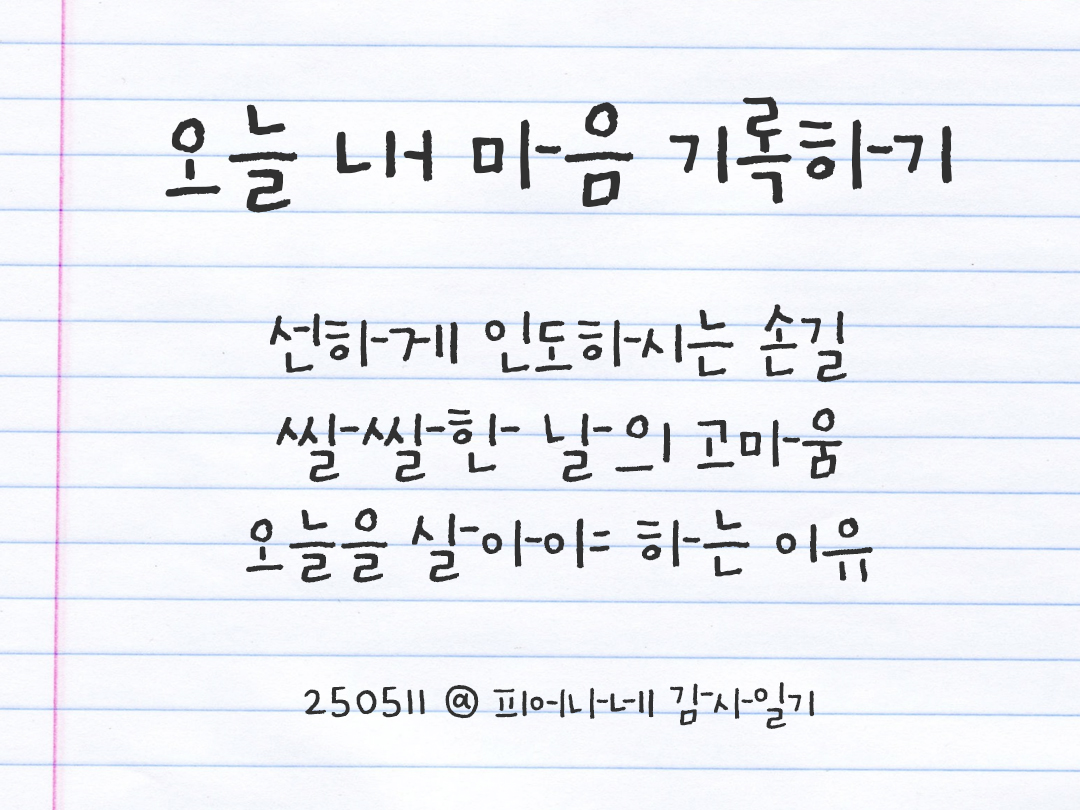 오늘 내 마음 기록하기
선하게 인도하시는 손길
쌀쌀한 날의 고마움
오늘을 살아야 하는 이유
250511 @ 피어나네 감사일기